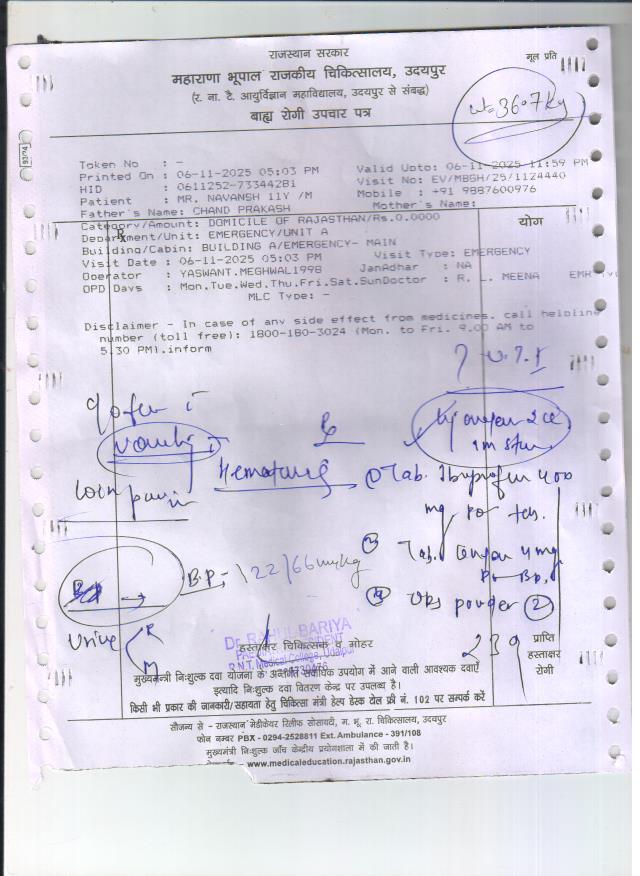 राजस्थान सरकार
मूल प्रति
महाराणा भूपाल राजकीय चिकित्सालय, उदयपुर
(र. ना. टै. आयुर्विज्ञान महाविद्यालय, उदयपुर से संबद्ध)
बाह्य रोगी उपचार पत्र
wt=36.7kg
Token No : -
Printed On : 06-11-2025 05:03 PM Valid Upto: 06-11-2025 11:59 PM
HID : 0611252-7334428i Visit No: EV/MBGH/25/1124440
Patient : MR. NAVANSH 11Y /M Mobile : +91 9887600976
Father's Name: CHAND PRAKASH Mother's Name:
Category/Amount: DOMICILE OF RAJASTHAN/Rs.0.0000
योग
Department/Unit: EMERGENCY/UNIT A
Building/Cabin: BUILDING A/EMERGENCY- MAIN
Visit Date : 06-11-2025 05:03 PM Visit Type: EMERGENCY
Operator : YASWANT.MEGHWAL1998 JanAdhar : NA
OPD Days : Mon.Tue.Wed.Thu.Fri.Sat.SunDoctor : R. L. MEENA
MLC Type: -
Disclaimer - In case of any side effect from medicines. call helpline
number (toll free): 1800-180-3024 (Mon. to Fri. 9.00 AM to
5:30 PM).inform
? U.T.I
Rx
2 cc
im stat
Hematuria
Tab. Ibuprofen 400
mg po tds.
loin pain
B.P:- 122/66 mmHg
Tab. 4 mg
po BD.
ORS powder 2
Urine R
M
239
Dr. RAHUL BARIYA
हस्ताक्षर चिकित्सक व मोहर
R.N.T. Medical College, Udaipur
प्राप्ति
हस्ताक्षर
रोगी
मुख्यमंत्री निःशुल्क दवा योजना के अन्तर्गत सर्वाधिक उपयोग में आने वाली आवश्यक दवाऐं
इत्यादि निःशुल्क दवा वितरण केन्द्र पर उपलब्ध है।
किसी भी प्रकार की जानकारी/सहायता हेतु चिकित्सा मंत्री हेल्प डेस्क टोल फ्री नं. 102 पर सम्पर्क करें
सौजन्य से - राजस्थान मेडीकेयर रिलीफ सोसायटी, म. भू. रा. चिकित्सालय, उदयपुर
फोन नम्बर PBX - 0294-2528811 Ext. Ambulance - 391/108
मुख्यमंत्री निःशुल्क जाँच केन्द्रीय प्रयोगशाला में की जाती है।
www.medicaleducation.rajasthan.gov.in